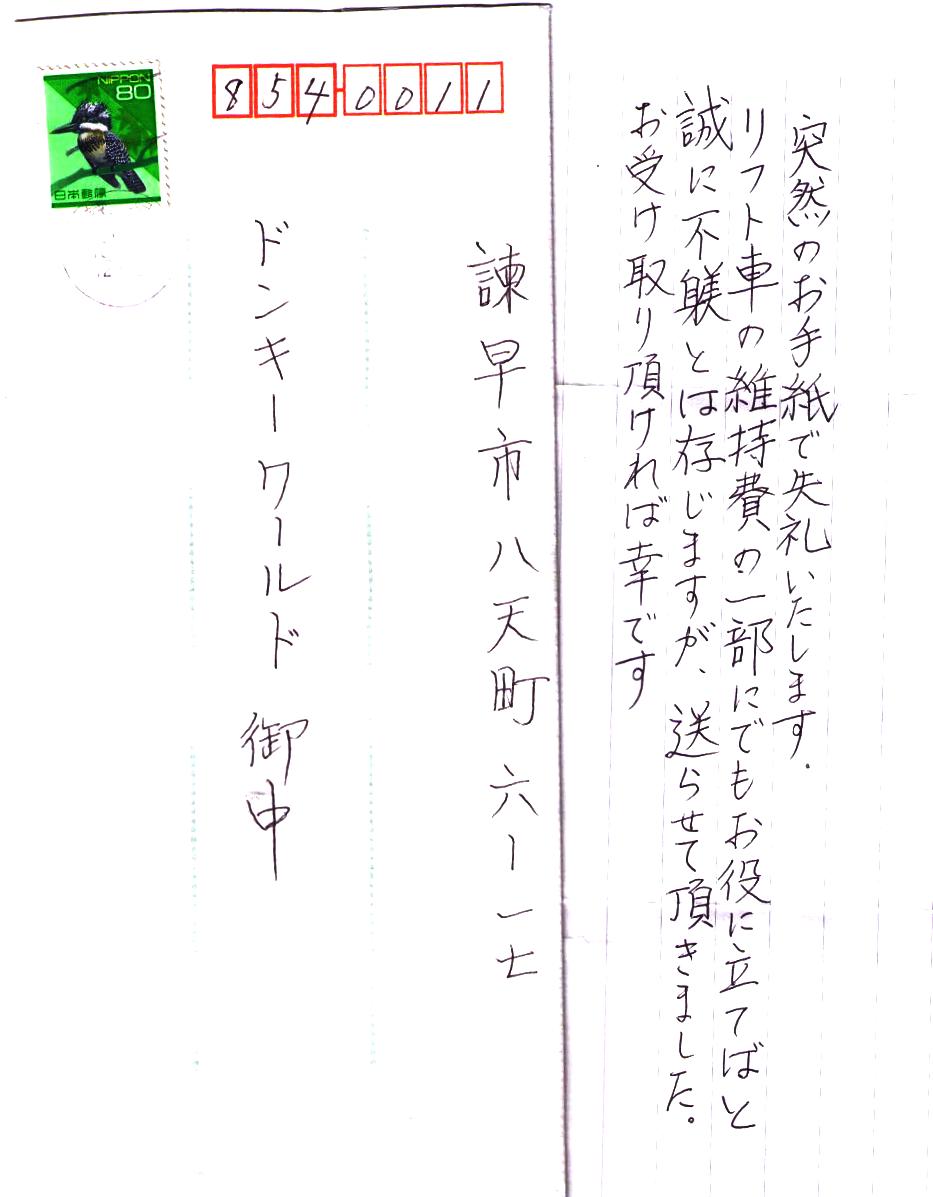 突然のお手紙で失礼いたします.
リフト車の維持費の一部にでもお役に立てばと
誠に不躾とは存じますが、送らせて頂きました。
お受け取り頂ければ幸です
NIPPON
80
日本郵便
854-0011
諫早市八天町六ー一七
ドンキーワールド 御中